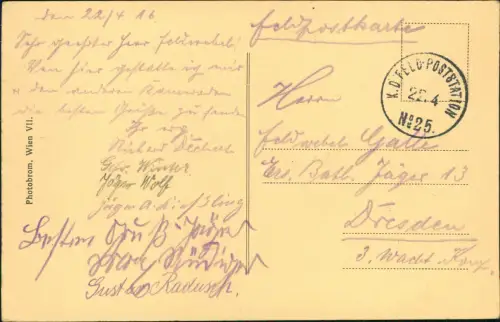 den 22/4 16
Sehr geehrter Herr Feldwebel!
Von hier gestatte ich mir
den anderen Kameraden
die besten Grüße zu senden
Ihr erg.
Richard
Gefr. Winter
Jäger Wolf
Jäger
Besten Gruß Jäger
Gustav Radusch.
Photobrom, Wien VII.
Feldpostkarte
K.D. FELD-POSTSTATION
22.4
No 25.
Herrn
Feldwebel Galle
Ers. Batl. Jäger 13
Dresden
3. Wacht Komp.